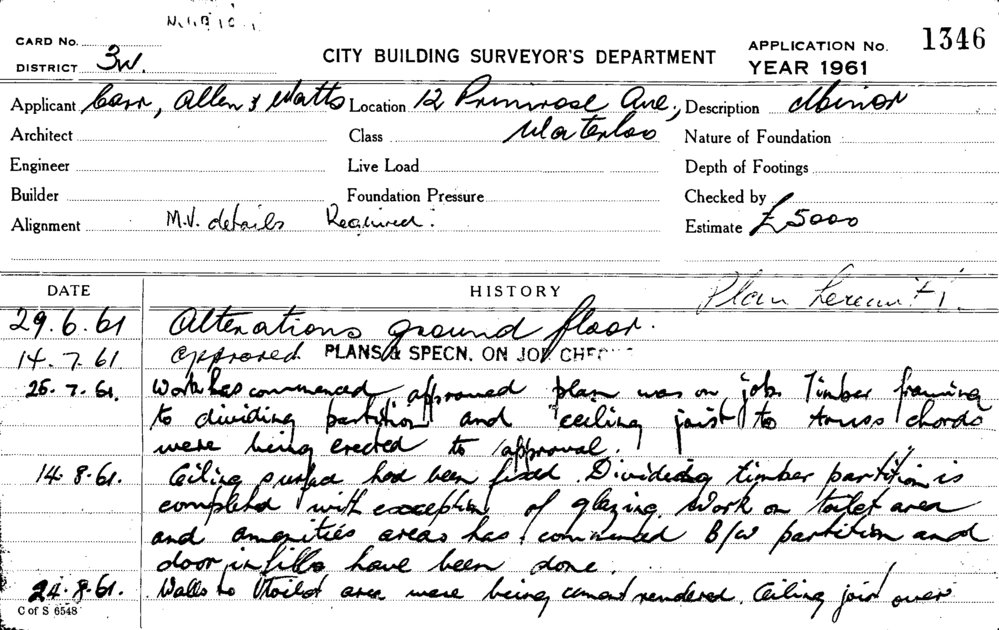 CARD No.
DISTRICT 3W.
CITY BUILDING SURVEYOR'S DEPARTMENT
APPLICATION No. 1346
YEAR 1961
Applicant Carr, Allen & Watts Location 12 Primrose Ave., Description Minor
Architect Class Waterloo Nature of Foundation
Engineer Live Load Depth of Footings
Builder Foundation Pressure Checked by
Alignment M.V. details Required. Estimate £5000
DATE HISTORY Plan
29.6.61 Alterations ground floor.
14.7.61 approved PLANS & SPECN. ON JOB
25.7.61. Work has commenced, approved plan was on job. Timber framing
to dividing partition and ceiling joist to truss chords
were being erected to approval.
14.8.61. Ceiling had been fixed. Dividing timber partition is
completed with exception of glazing. Work on toilet area
and amenities areas has commenced B/W partition and
door infills have been done.
24.8.61. Walls to toilet area were being cement rendered. Ceiling joist over
C of S 6548